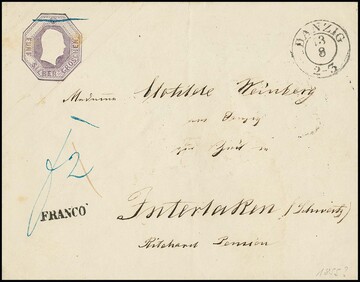 FÜNF SILBER-GROSCHEN
DANZIG
13
8
2-3
Madame Clotilde Weinberg
aus Danzig
zur Zeit in
FRANCO
Interlaken (Schweitz)
Ritchard Pension